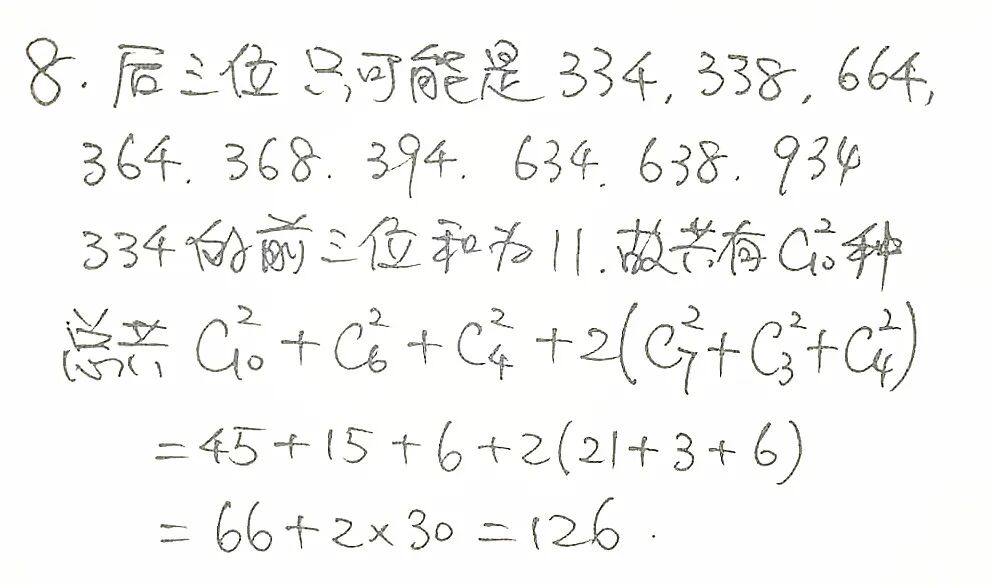 8. 后三位只可能是 334, 338, 664,
364. 368. 394. 634. 638. 934
334的前三位和为11.故共有 C₁₀² 种
总共 C₁₀² + C₆² + C₄² + 2(C₇² + C₃² + C₄²)
= 45 + 15 + 6 + 2(21 + 3 + 6)
= 66 + 2 × 30 = 126.